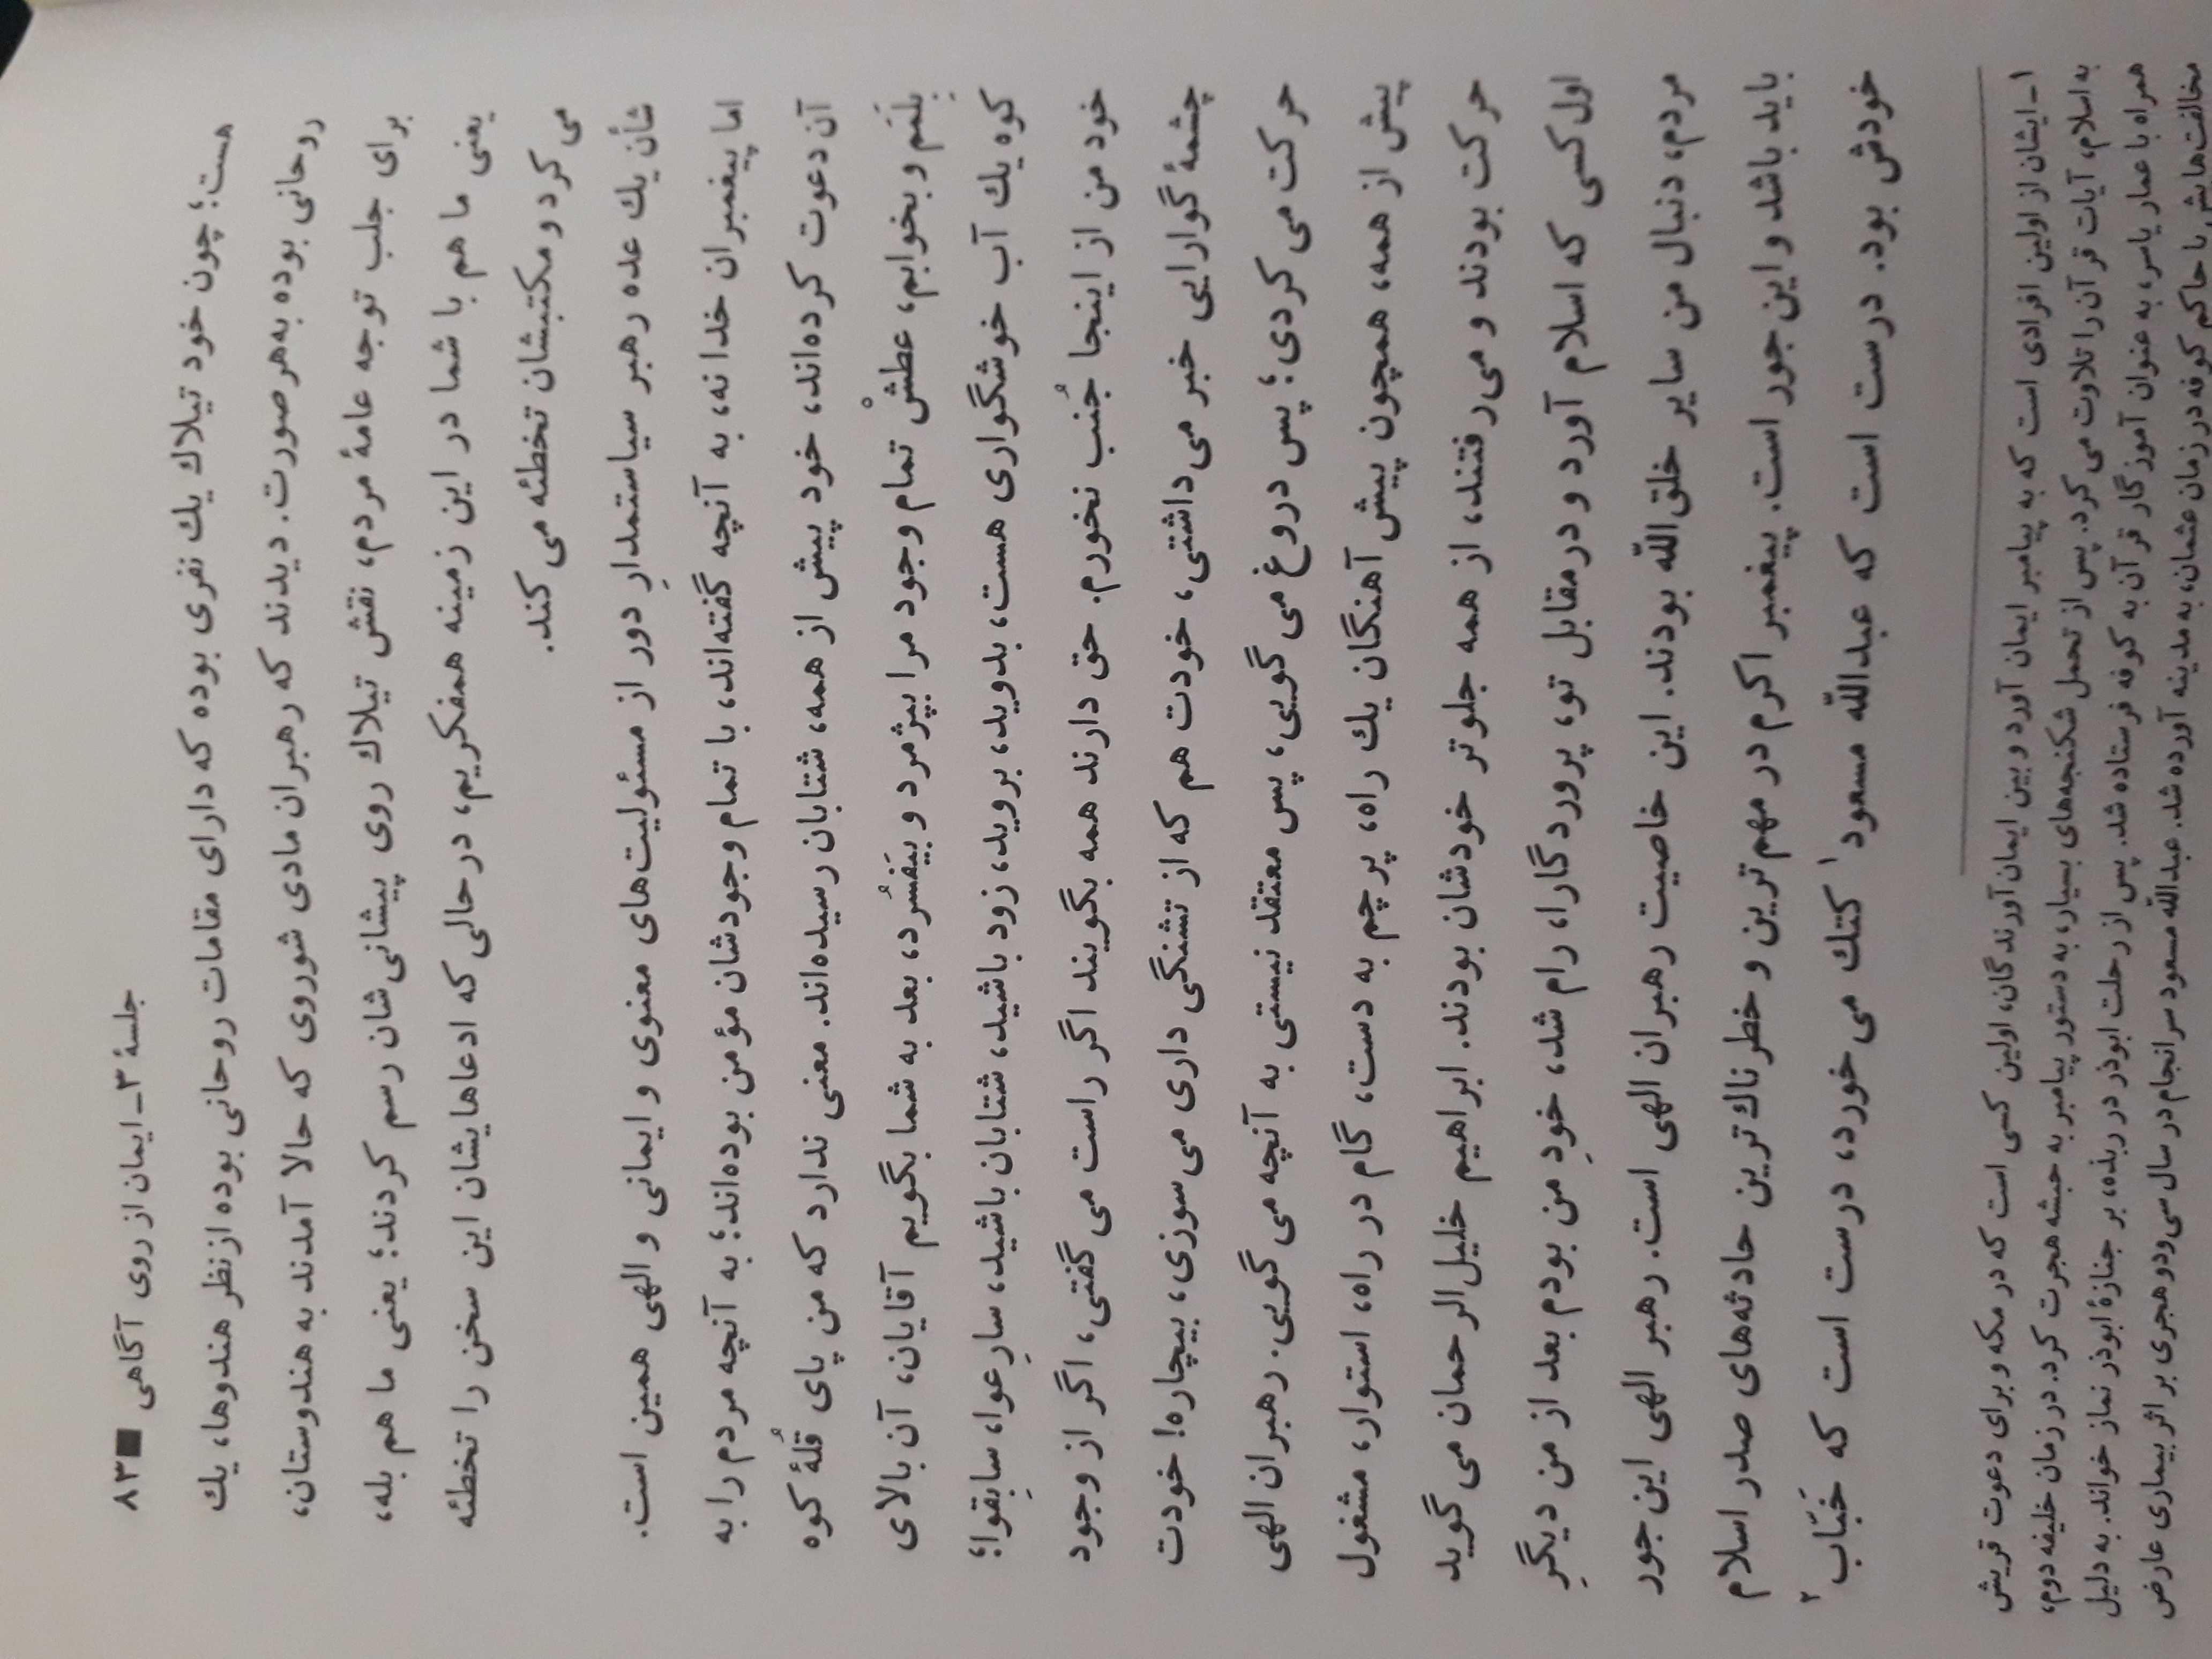 جلسهٔ ۳ـ ایمان از روی آگاهی ■ ۸۳
هست؛ چون خود تیلاك یك نفری بوده که دارای مقامات روحانی بوده از نظر هندوها، یك
روحانی بوده به‌هرصورت. دیدند که رهبران مادی شوروی که حالا آمدند به هندوستان،
برای جلب توجه عامهٔ مردم، نقش تیلاك روی پیشانی‌شان رسم کردند؛ یعنی ما هم بله،
یعنی ما هم با شما در این زمینه همفکریم، درحالی که ادعاهایشان این سخن را تخطئه
می‌کرد و مکتبشان تخطئه می‌کند.
شأن یك عده رهبر سیاستمدارِ دور از مسئولیت‌های معنوی و ایمانی و الهی همین است.
اما پیغمبران خدا نه، به آنچه گفته‌اند، با تمام وجودشان مؤمن بوده‌اند؛ به آنچه مردم را به
آن دعوت کرده‌اند، خود پیش از همه، شتابان رسیده‌اند. معنی ندارد که من پای قُلهٔ کوه
بِلَمَم و بخوابم، عطشْ تمام وجود مرا بپژمرد و بیَفسُرد، بعد به شما بگویم آقایان، آن بالای
کوه یك آب خوشگواری هست، بدوید، بروید، زود باشید، شتابان باشید، سارِعوا، سابِقوا؛
خود من از اینجا جُنب نخورم. حق دارند همه بگویند اگر راست می‌گفتی، اگر از وجود
چشمهٔ گوارایی خبر می‌داشتی، خودت هم که از تشنگی داری می‌سوزی، بیچاره! خودت
حرکت می‌کردی؛ پس دروغ می‌گویی، پس معتقد نیستی به آنچه می‌گویی. رهبران الهی
پیش از همه، همچون پیش‌آهنگان یك راه، پرچم به دست، گام در راه، استوار، مشغول
حرکت بودند و می‌رفتند، از همه جلوتر خودشان بودند. ابراهیم خلیل‌الرحمان می‌گوید
اول کسی که اسلام آورد و درمقابل تو، پروردگارا، رام شد، خودِ من بودم بعد از من دیگرِ
مردم، دنبال من سایر خلق‌اللّه بودند. این خاصیت رهبران الهی است. رهبر الهی این جور
باید باشد و این جور است. پیغمبر اکرم در مهم‌ترین و خطرناك‌ترین حادثه‌های صدر اسلام
خودش بود. درست است که عبداللّه مسعود۱ کتك می‌خورد، درست است که خَبّاب۲
۱ـ ایشان از اولین افرادی است که به پیامبر ایمان آورد و بین ایمان‌آورندگان، اولین کسی است که در مکه و برای دعوت قریش
به اسلام، آیات قرآن را تلاوت می‌کرد. پس از تحمل شکنجه‌های بسیار، به دستور پیامبر به حبشه هجرت کرد. در زمان خلیفه دوم،
همراه با عمار یاسر، به عنوان آموزگار قرآن به کوفه فرستاده شد. پس از رحلت ابوذر در ربذه، بر جنازهٔ ابوذر نماز خواند. به دلیل
مخالفت‌هایش با حاکم کوفه در زمان عثمان، به مدینه آورده شد. عبداللّه مسعود سرانجام در سال سی‌ودو هجری بر اثر بیماری عارض